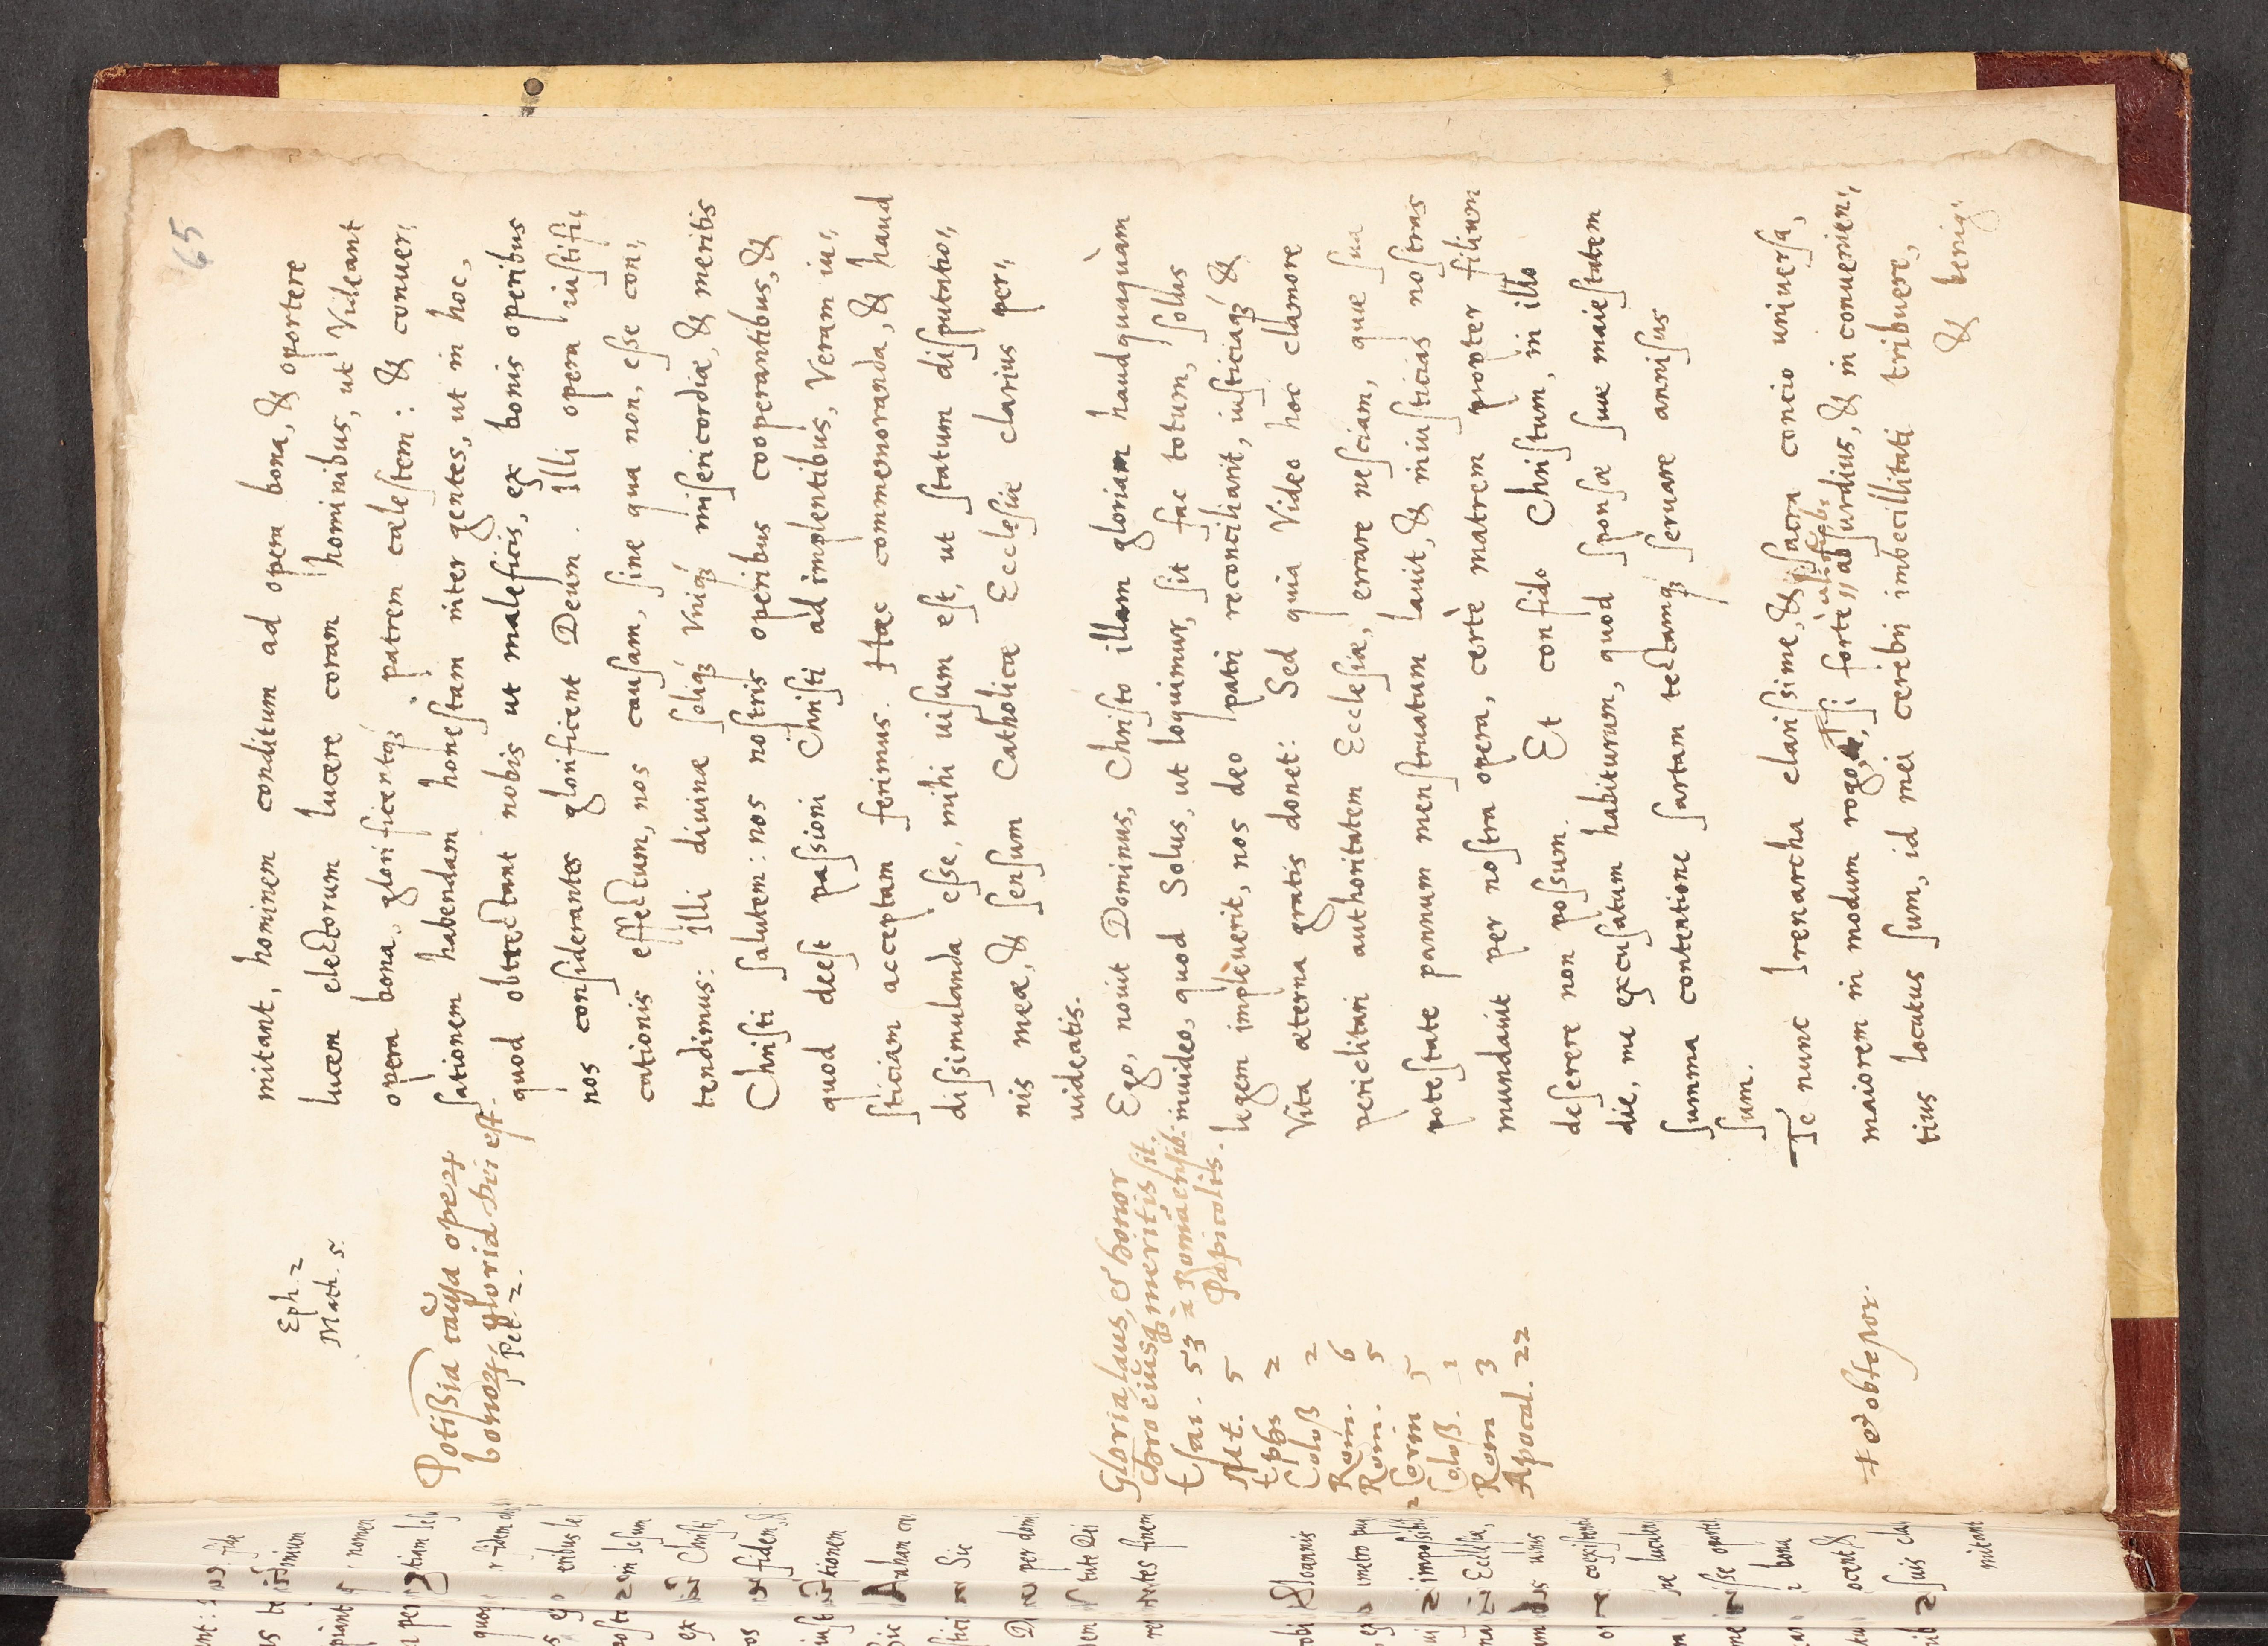 65
mitant, hominem conditum ad opera bona, & oportere
Eph. 2
lucem electorum lucere coram hominibus, ut Videant
Math. 5.
opera bona, glorificentqꝫ patrem cælestem: & conuer„
sationem habendam honestam inter gentes, ut in hoc,
Potißia cãusa opeꝝ
bonoꝝ, gloria Dei est.
Pet. 2.
quod obtrectant nobis ut maleficis, ex bonis operibus
nos considerantes glorificent Deum. Illi opera iustifi„
cationis effectum, nos causam, sine qua non, esse con„
tendimus: Illi diuinæ soliqꝫ Vniqꝫ misericordiæ, & meritis
Christi salutem: nos nostris operibus cooperantibus, &
quod deest passioni Christi adimplentibus, Veram iu„
sticiam acceptam ferimus. Hæc commemoranda, & haud
dissimulanda esse, mihi uisum est, ut statum disputatio„
nis meæ, & sensum Catholicæ Ecclesiæ clarius per„
uideatis.
Gloria, laus, et honor
Christo eiusqꝫ meritis sit.
à Romanensib:
Papicolis.
Ego, nouit Dominus, Christo illam gloriam haudquaquàm
inuideo, quod Solus, ut loquimur, sit fac totum, solus
legem impleuerit, nos deo patri reconciliarit, iusticiaqꝫ &
Vita æterna gratis donet: Sed quia Video hoc clamore
periclitari authoritatem Ecclesiæ, errare nesciam, quæ sua
potestate pannum menstruatum lauit, & iniusticias nostras
mundauit per nostra opera, certè matrem propter filium
deserere non possum. Et confido Christum, in illo
die, me excusatum habiturum, quod sponsæ suæ maiestatem
summa contentione sartam tectamqꝫ seruare annisus
sum.
Esai. 53
Act. 5
Ephs 2
Coloß 2
Rom. 6
Rom. 5
2 Corin 5
Coloß. 1
Rom 3
Apocal. 22
Te nunc Irenarcha clarissime, & sacra concio uniuersa,
maiorem in modum rogo, si fortè absurdius, & inconuenien„
+ et obtestor.
tius locutus sum, id mei cerebri imbecillitati tribuere,
& benig„